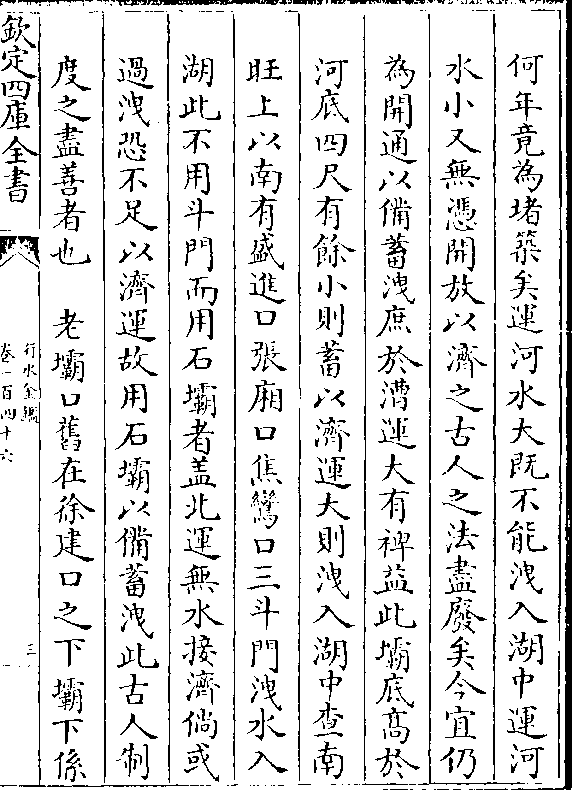 何年竟為堵築矣運河水大既不能洩入湖中運河
水小又無憑開放以濟之古人之法盡廢矣今宜仍
為開通以備蓄洩庶於漕運大有裨益此壩底高於
河底四尺有餘小則蓄以濟運大則洩入湖中查南
旺上以南有盛進口張廂口焦鸞口三斗門洩水入
湖此不用斗門而用石壩者盖北運無水接濟倘或
過洩恐不足以濟運故用石壩以備蓄洩此古人制
度之盡善者也　老壩口舊在徐建口之下壩下係
欽定四庫全書
行水金鑑
卷一百四十六
三